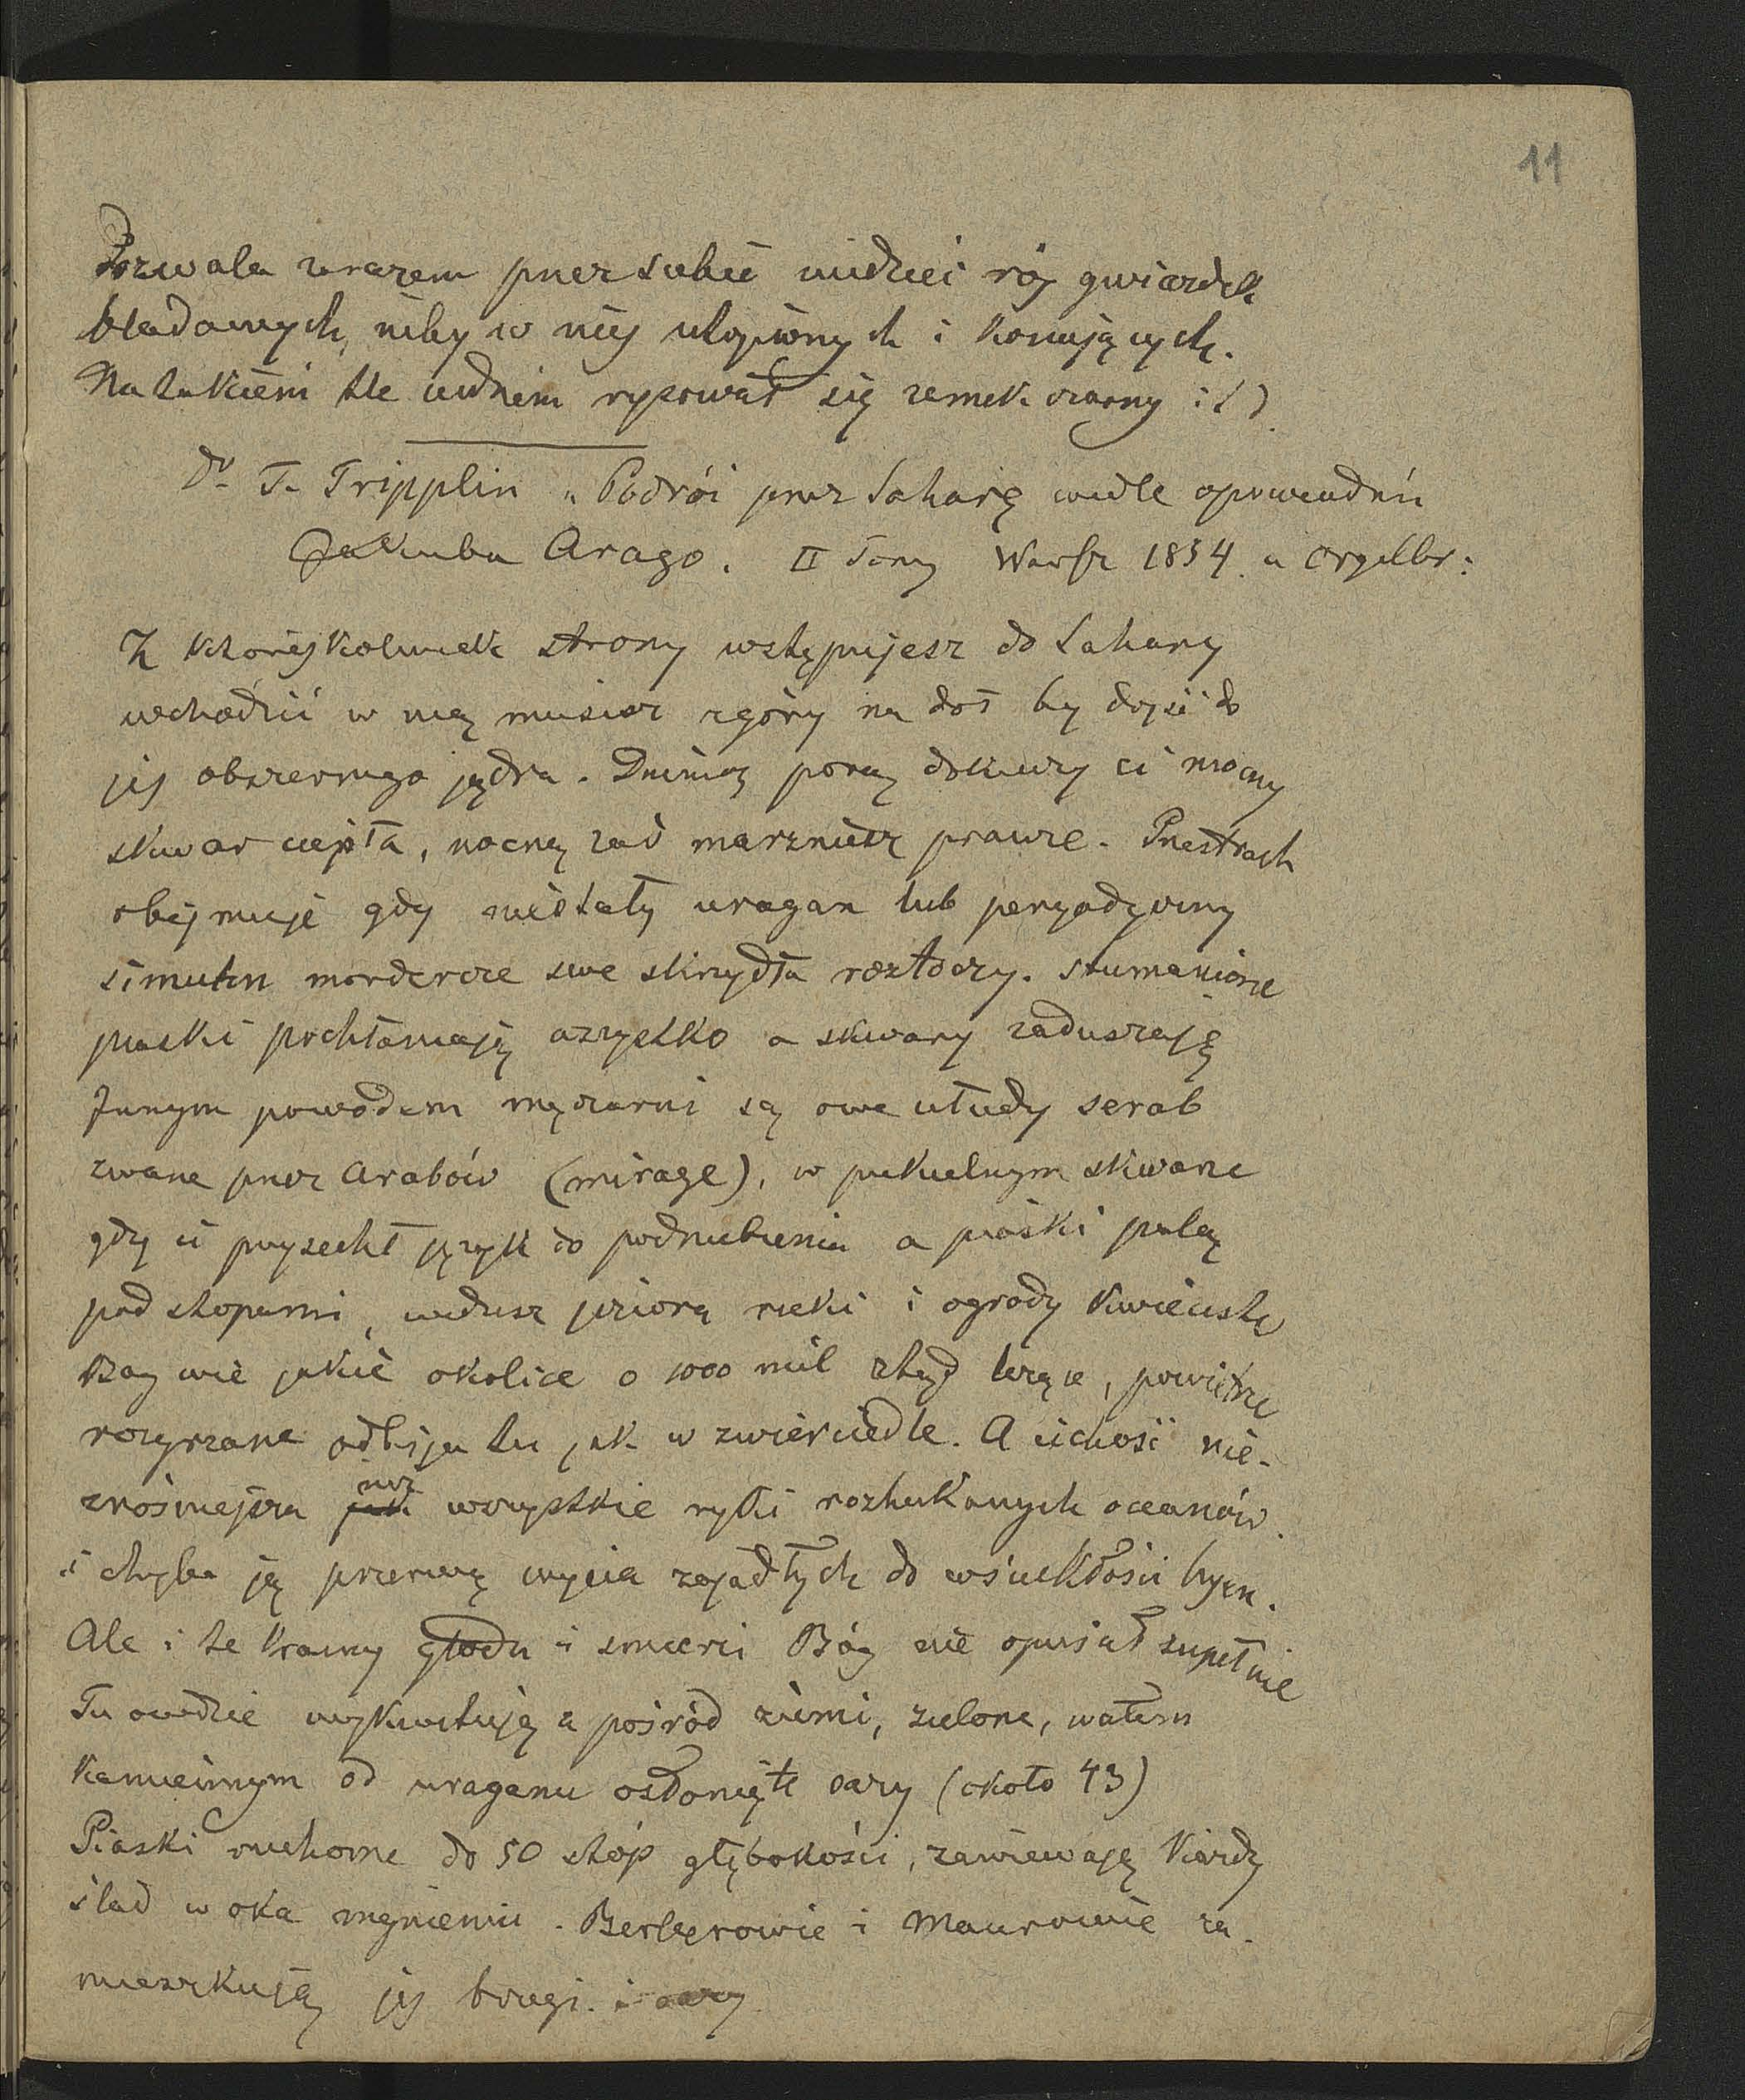 11
Pozwala zarazem przez siebie widzieć rój gwiazdek
bladawych, niby w niej utopionych i konających.
Na takiem tle cudnem rysował się zamek czarny i t d
Dr T. Tripplin „Podróż przez Saharę wedle opowiadań
Jakuba Arago. II Tomy Warsz 1854. u Orgelbr:
Z którejkolwiek strony wstępujesz do Sahary
wchodzić w nię musisz z góry na dół by dojść do
jej obszernego jądra. Dzienną porą dokuczy ci mocny
skwar ciepła, nocną zaś marzniesz prawie. Przestrach
obejmuje gdy niestały uragan lub peryodyczny
simun mordercze swe skrzydła roztoczy. Stumanione
piaski pochłaniają wszystko a skwary zaduszają
Innym powodem męczarni są owe ułudy serab
zwane przez Arabów (mirage), w piekielnym skwarze
gdy ci przysechł język do podniebienia a piaski palą
pod stopami, widzisz jeziora rzeki i ogrody kwieciste
Bóg wie jakie okolice o 1000 mil ztąd leżące, powietrze
rozgrzane odbija tu jak w zwierciedle. A cichość nie-
znośniejsza jak niż wszystkie ryki rozhukanych oceanów.
i chyba ją przerwą wycia zajadłych do wściekłości hyen.
Ale i te krainy głodu i śmierci Bóg nie opuścił zupełnie
Tu owdzie wykwitują z pośród ziemi, zielone, wałem
kamiennym od uraganu osłonięte oazy (około 43)
Piaski ruchome do 50 stóp głębokości, zawiewają każdy
ślad w oka mgnieniu. Berberowie i Maurowie za-
mieszkują jej brzegi. i oazy